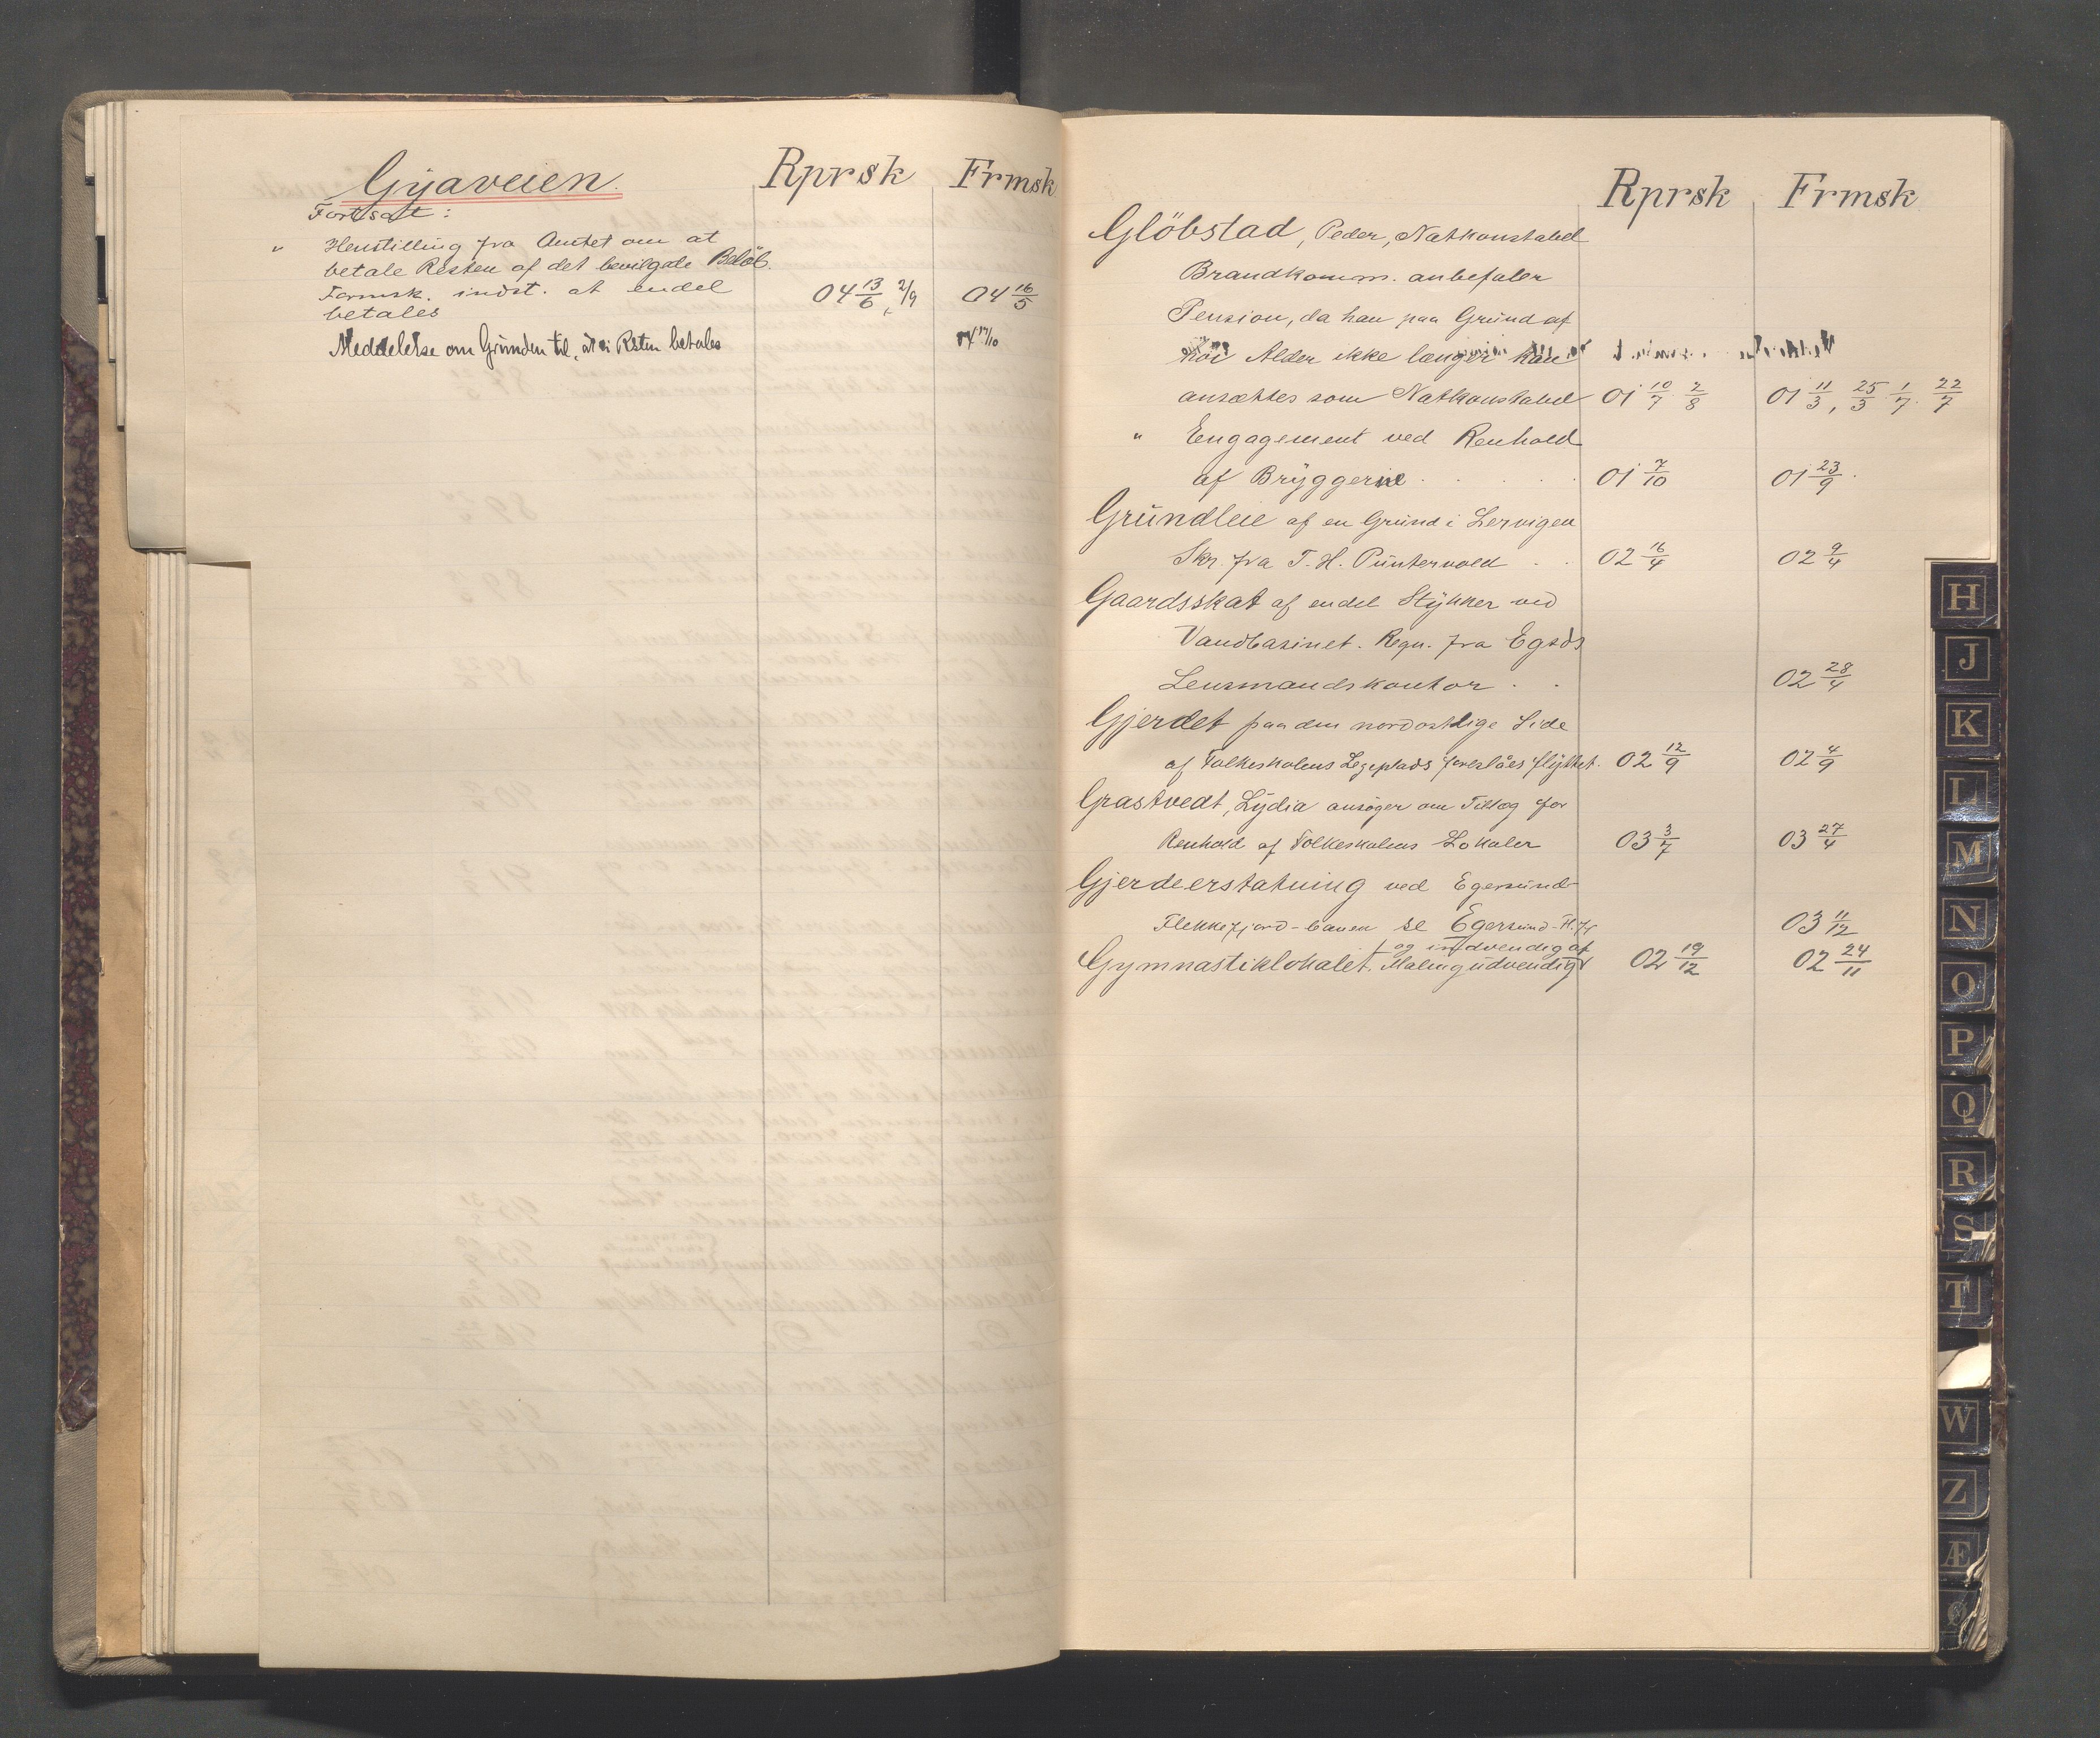 Gyaveien. Rprsk Frmsk.
Fortsat:
" Henstilling fra Amtet om at
betale Resten af det bevilgede Beløb.
Formsk. indst. at endel 04 13/6, 2/9 04 16/5
betales
Meddelelse om Grunden til, at ei Resten betales 04 17/10
Rprsk Frmsk
Glöbstad, Peder, Natkonstabel
Brandkomm. anbefaler
Pension, da han paa Grund af
höi Alder ikke længer kan
ansættes som Natkonstabel 01 10/7 2/8 01 11/3, 25/3 1/7 22/7
" Engagement ved Renhold
af Bryggerne 01 7/10 01 23/9
Grundleie af en Grund i Lervigen
Skr. fra T. H. Puntervold 02 16/4 02 9/4
Gaardsskat af endel Stykker ved
Vandbasinet. Regn. fra Egsds
Lensmandskontor 02 28/4
Gjerdet paa den nordostlige Side
af Folkeskolens Legeplads foreslåes flyttet. 02 12/9 02 4/9
Grastvedt, Lydia ansøger om Tillæg for
Renhold af Folkeskolens Lokaler 03 3/7 03 27/4
Gjerdeerstatning ved Egersund-
Flekkefjord-banen se Egersund-Fl.fj 03 11/12
og indvendig af
Gymnastiklokalet. Maling udvendig 02 19/12 02 24/11
H
J
K
L
M
N
O
P
Q
R
S
T
W
Z
Æ
Ø